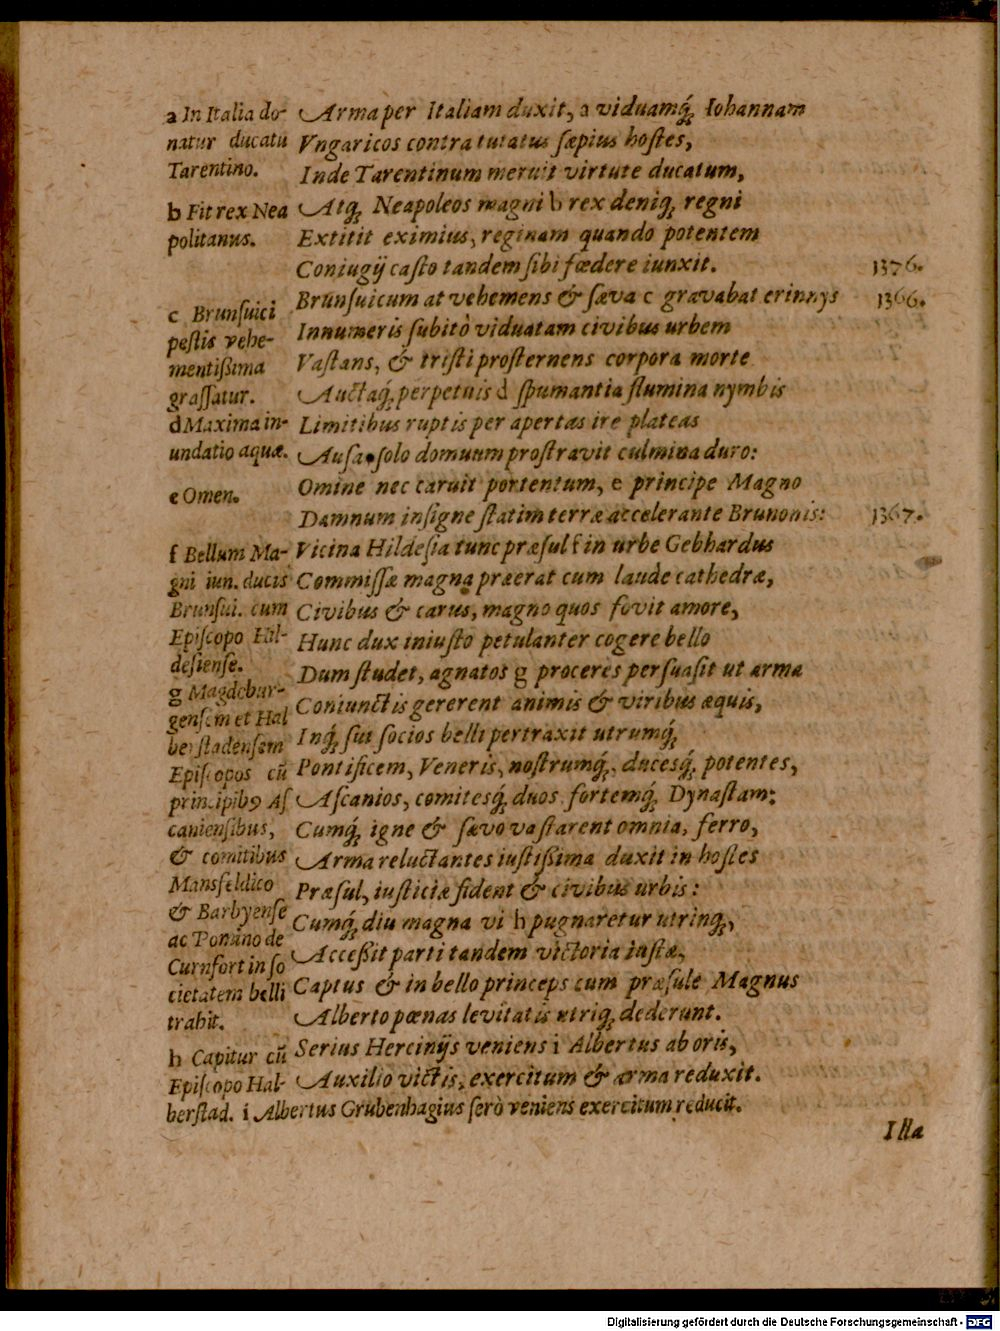 a In Italia do-
natur ducatu
Tarentino.
b Fit rex Nea
politanus.
c Brunſuici
peſtis vehe-
mentißima
graſſatur.
d Maxima in-
undatio aquæ.
e Omen.
f Bellum Ma-
gni iun. ducis
Brunſui. cum
Epiſcopo Hil-
deſienſe.
g Magdebur-
genſem et Hal
berſtadenſem
Epiſcopos cū
principibꝰ Aſ
canienſibus,
& comitibus
Mansfeldico
& Barbyenſe
ac Ponano de
Curnfort in ſo
cietatem belli
trahit.
h Capitur cū
Epiſcopo Hal-
berſtad. i Albertus Grubenhagius ſerò veniens exercitum reducit.
Arma per Italiam duxit, a viduamq́ꝫ Iohannam
Vngaricos contra tutatus ſæpius hoſtes,
Inde Tarentinum meruit virtute ducatum,
Atqꝫ Neapoleos magni b rex deniqꝫ regni
Extitit eximius, reginam quando potentem
Coniugij caſto tandem ſibi fœdere iunxit.
1376.
Brunſuicum at vehemens & ſæva c gravabat erinnys
1366.
Innumeris ſubitò viduatam civibus urbem
Vaſtans, & triſti proſternens corpora morte
Auctaq́ꝫ perpetuis d ſpumantia flumina nymbis
Limitibus ruptis per apertas ire plateas
Auſa ſolo domuum proſtravit culmina duro:
Omine nec caruit portentum, e principe Magno
Damnum inſigne ſtatim terræ accelerante Brunonis:
1367.
Vicina Hildeſia tunc præſul f in urbe Gebhardus
Commiſſæ magna præerat cum laude cathedræ,
Civibus & carus, magno quos fovit amore,
Hunc dux iniuſto petulanter cogere bello
Dum ſtudet, agnatos g proceres perſuaſit ut arma
Coniunctis gererent animis & viribus æquis,
Inq́ꝫ ſui ſocios belli pertraxit utrumq́ꝫ
Pontificem, Veneris, noſtrumq́ꝫ, ducesq́ꝫ potentes,
Aſcanios, comitesq́ꝫ duos fortemq́ꝫ Dynaſtam:
Cumq́ꝫ igne & ſævo vaſtarent omnia, ferro,
Arma reluctantes iuſtißima duxit in hoſtes
Præſul, iuſticiæ fident & civibus urbis:
Cumq́ꝫ diu magna vi h pugnaretur utrinqꝫ,
Acceßit parti tandem victoria iuſtæ,
Captus & in bello princeps cum præſule Magnus
Alberto pœnas levitatis utriqꝫ dederunt.
Serius Hercinijs veniens i Albertus ab oris,
Auxilio victis, exercitum & arma reduxit.
Illa
Digitalisierung gefördert durch die Deutsche Forschungsgemeinschaft - DFG